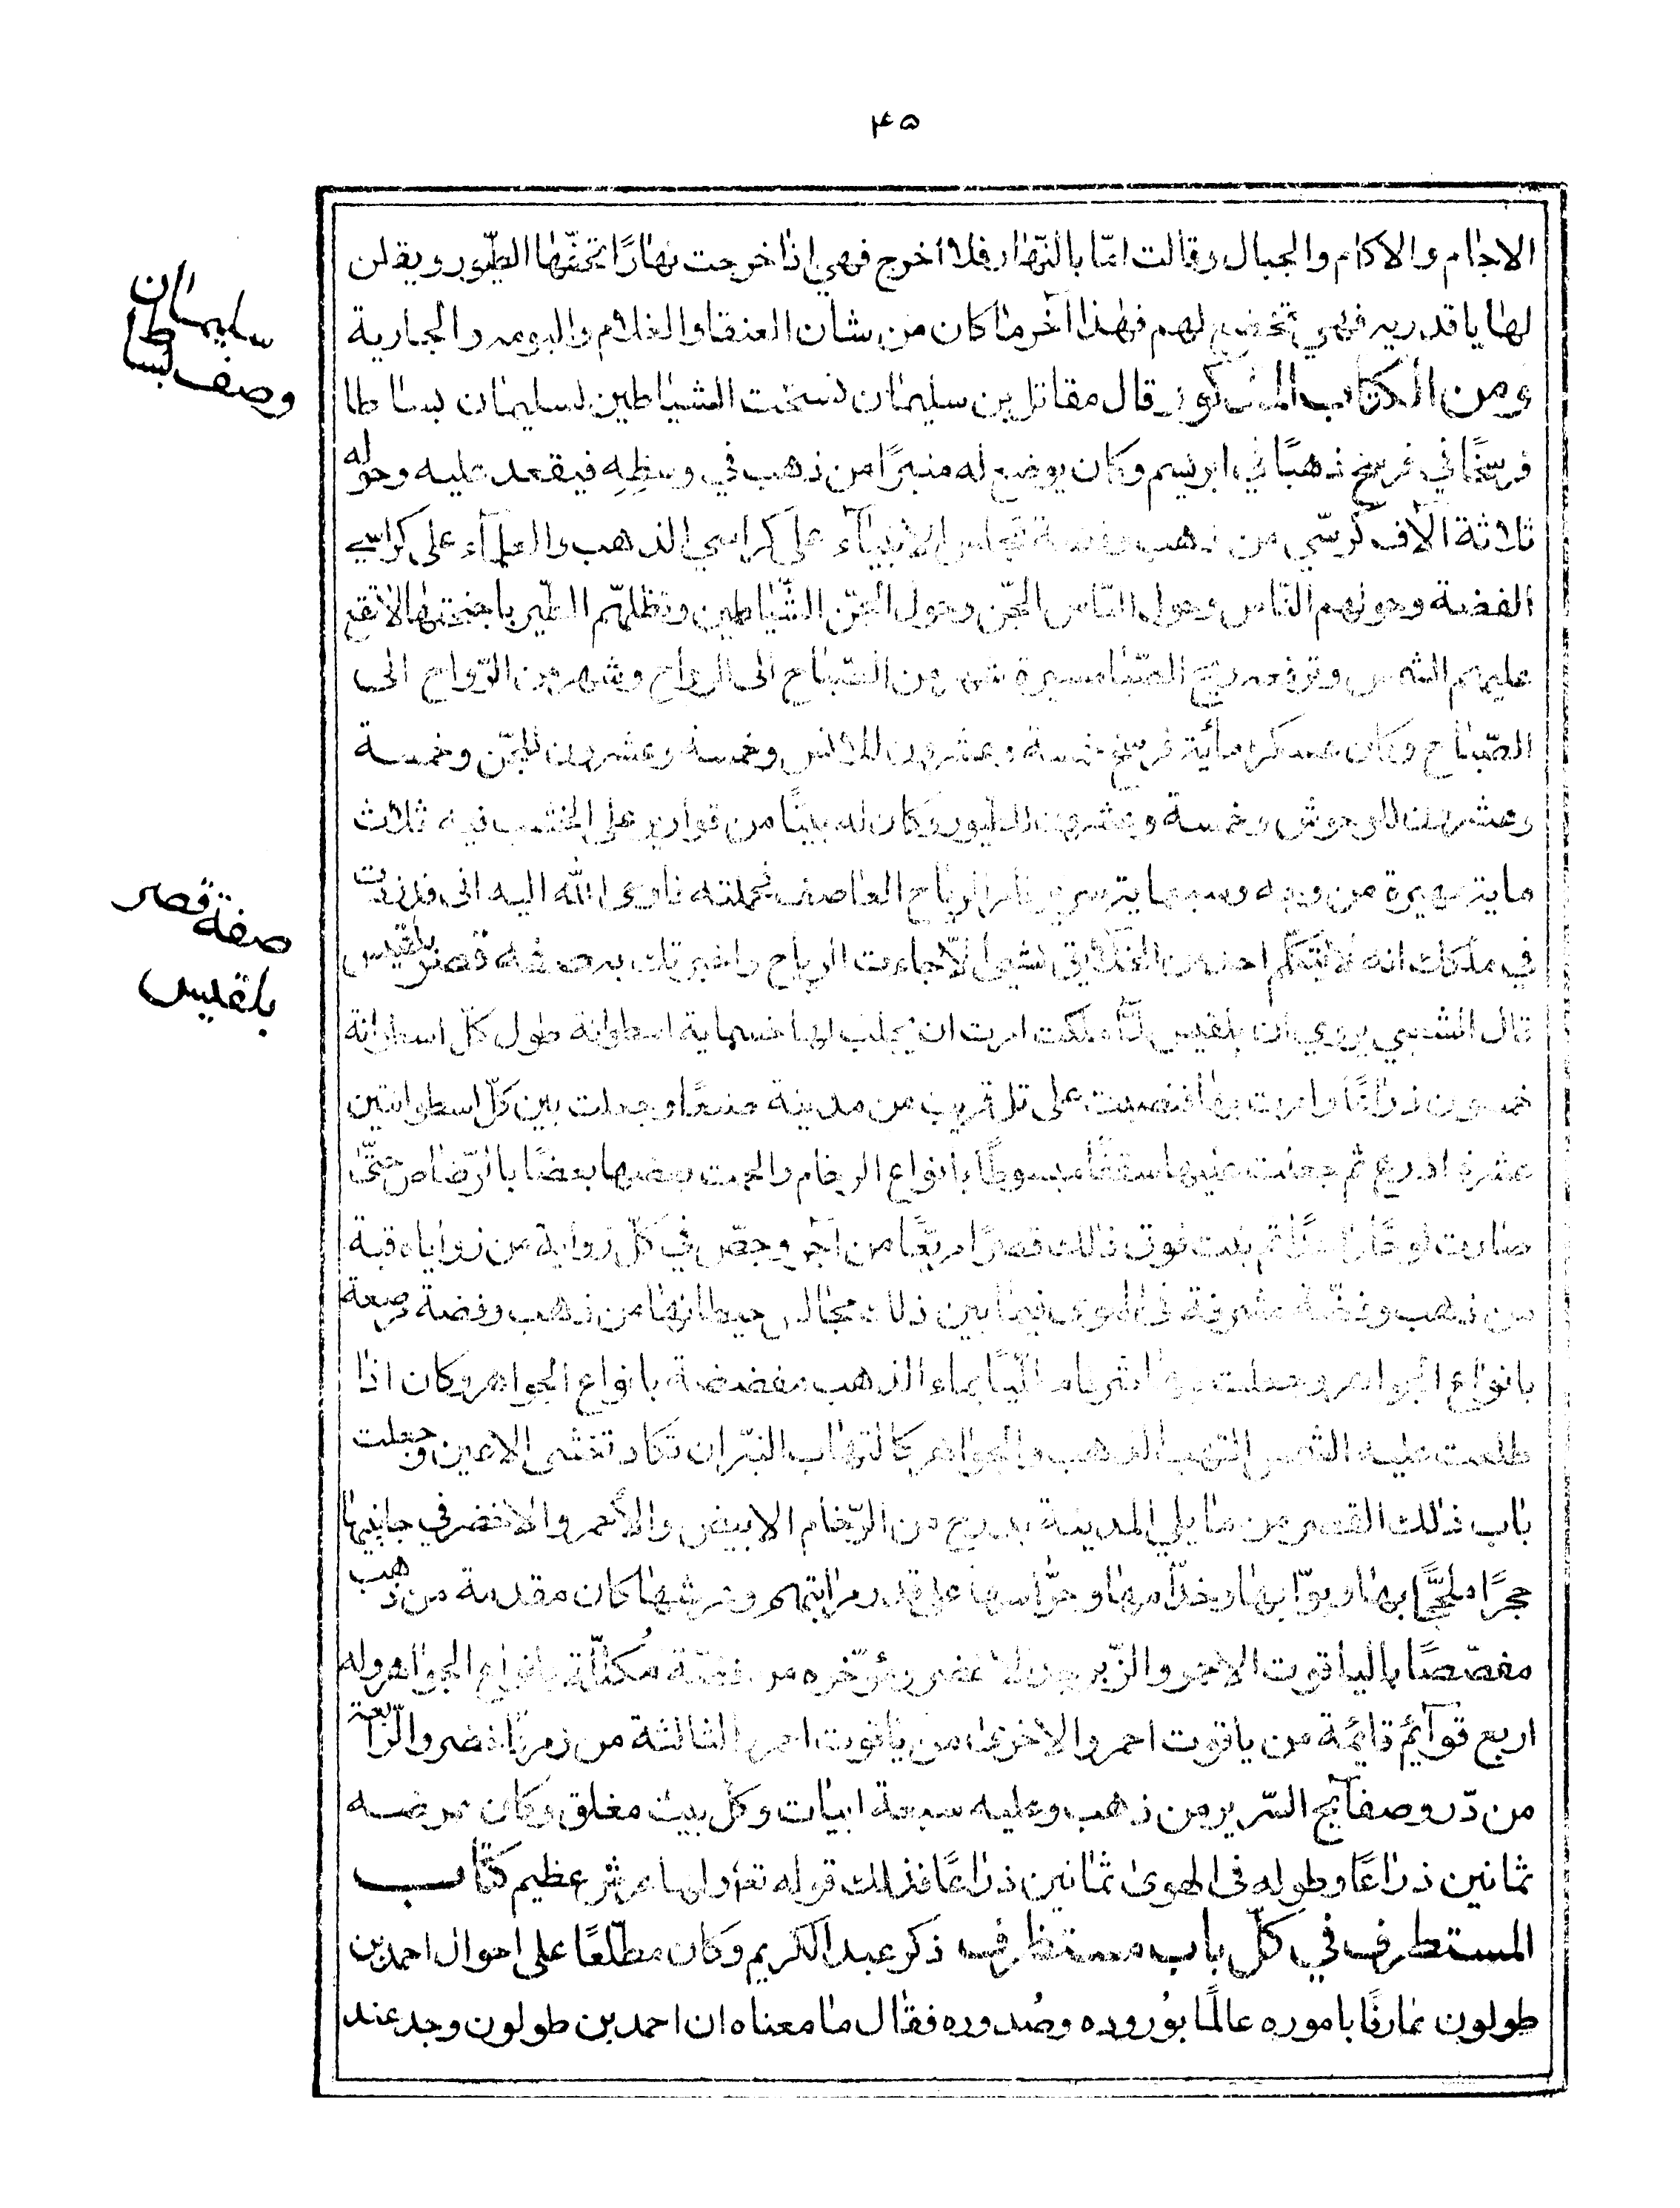 ۴۵
الاجام والاكام والجبال وقالت امّا بالنّهار فلا أخرج فهي اذا خرجت نهارًا تحفّها الطّيور ويقلن
لها يا قدريه فهي تخضع لهم فهذا آخر ما كان من شأن العنقا والغلام والبومه والجارية
ومن الكتاب المذكور قال مقاتل بن سليمان نسخت الشياطين لسليمان بساطا
فرسخًا في فرسخ ذهبًا في ابريسم وكان يوضع له منبرًا من ذهب في وسطِهِ فيقعد عليه وحوله
ثلاثة آلاف كرسّي من ذهب وفضة تجلس الانبيآء على كراسي الذهب والعلمآء على كراسي
الفضة وحولهم النّاس وحول النّاس الجّن وحول الجّن الشّياطين وتظلّهم الطّير باجنحتها لا تقع
عليهم الشمس وترفعه ريح الصّبا مسيرة شهر من الصّباح الى الرواح وشهر من الرّواح الى
الصّباح وكان عسكره مأية فرسخ خمسة وعشرون للانس وخمسة وعشرون للجّن وخمسة
وعشرون للوحوش وخمسة وعشرون للطيور وكان له بيتًا من قوارير على الخشب فيه ثلاث
ماية مهيرة من وجه وسبعماية سرير فامر الرياح العاصف فحملته فاوحى الله اليه اني قد زدت
في ملكك انه لا يتكلّم احد من الخلائق بشيء الّا جاءت الرياح واخبرتك به صفة قصر بلقيس
قال الشعبي يروي ان بلقيس لمّا ملكت امرت ان يجلب لها خسماية اسطوانة طول كلّ اسطوانة
خمسون ذراعًا وامرت بها فنصبت على تل قريب من مدينة صنعا وجعلت بين كلّ اسطوانتين
عشرة اذرع ثم جعلت عليها سقفًا مبسوطًا بانواع الرخام والحمت بعضها بعضًا بالرّصاص حتّى
صارت لوحًا واحدًا ثم بنت فوق ذلك قصرًا مربّعًا من آجر وجصّ في كلّ زواية من زواياه قبة
من ذهب وفضّة مشرفة في الهوى فيما بين ذلك مجالس حيطانها من ذهب وفضة مرصعة
بانواع الجواهر وجعلت بماء الذهب مفضضة بانواع الجواهر وكان اذا
طلعت عليه الشمس التهب الذهب والجواهر كالتهاب النيّران تكاد تغشى الاعين وجعلت
باب ذلك القصر من ما يلي المدينة بدرج من الرّخام الابيض والأحمر والاخضر في جانبيها
حجرًا لحجّابها وبوّابها وخدّامها وحرّاسها على قدر مراتبهم وعرشها كان مقدمة من ذهب
مفصّصًا بالياقوت الاحمر والزّبرجد الاخضر ومؤخره من فضّة مُكلّلة بانواع الجواهر وله
اربع قوآئم قايمة من ياقوت احمر والاخرى من ياقوت اصفر الثالثة من زمرّد اخضر والرّابعة
من دّر وصفآئح السّرير من ذهب وعليه سبعة ابيات وكلّ بيت مغلق وكان عرضه
ثمانين ذراعًا وطوله فى الهوىٰ ثمانين ذراعًا فذلك قوله تعٰ ولها عرش عظيم كتاب
المستطرف في كلّ باب مستظرف ذكر عبد الكريم وكان مطّلعًا على احوال احمد بن
طولون عارفًا باموره عالمًا بوُروده وصُدوره فقال ما معناه ان احمد بن طولون وجد عند
وصف بساط
سليمان
صفة قصر
بلقيس